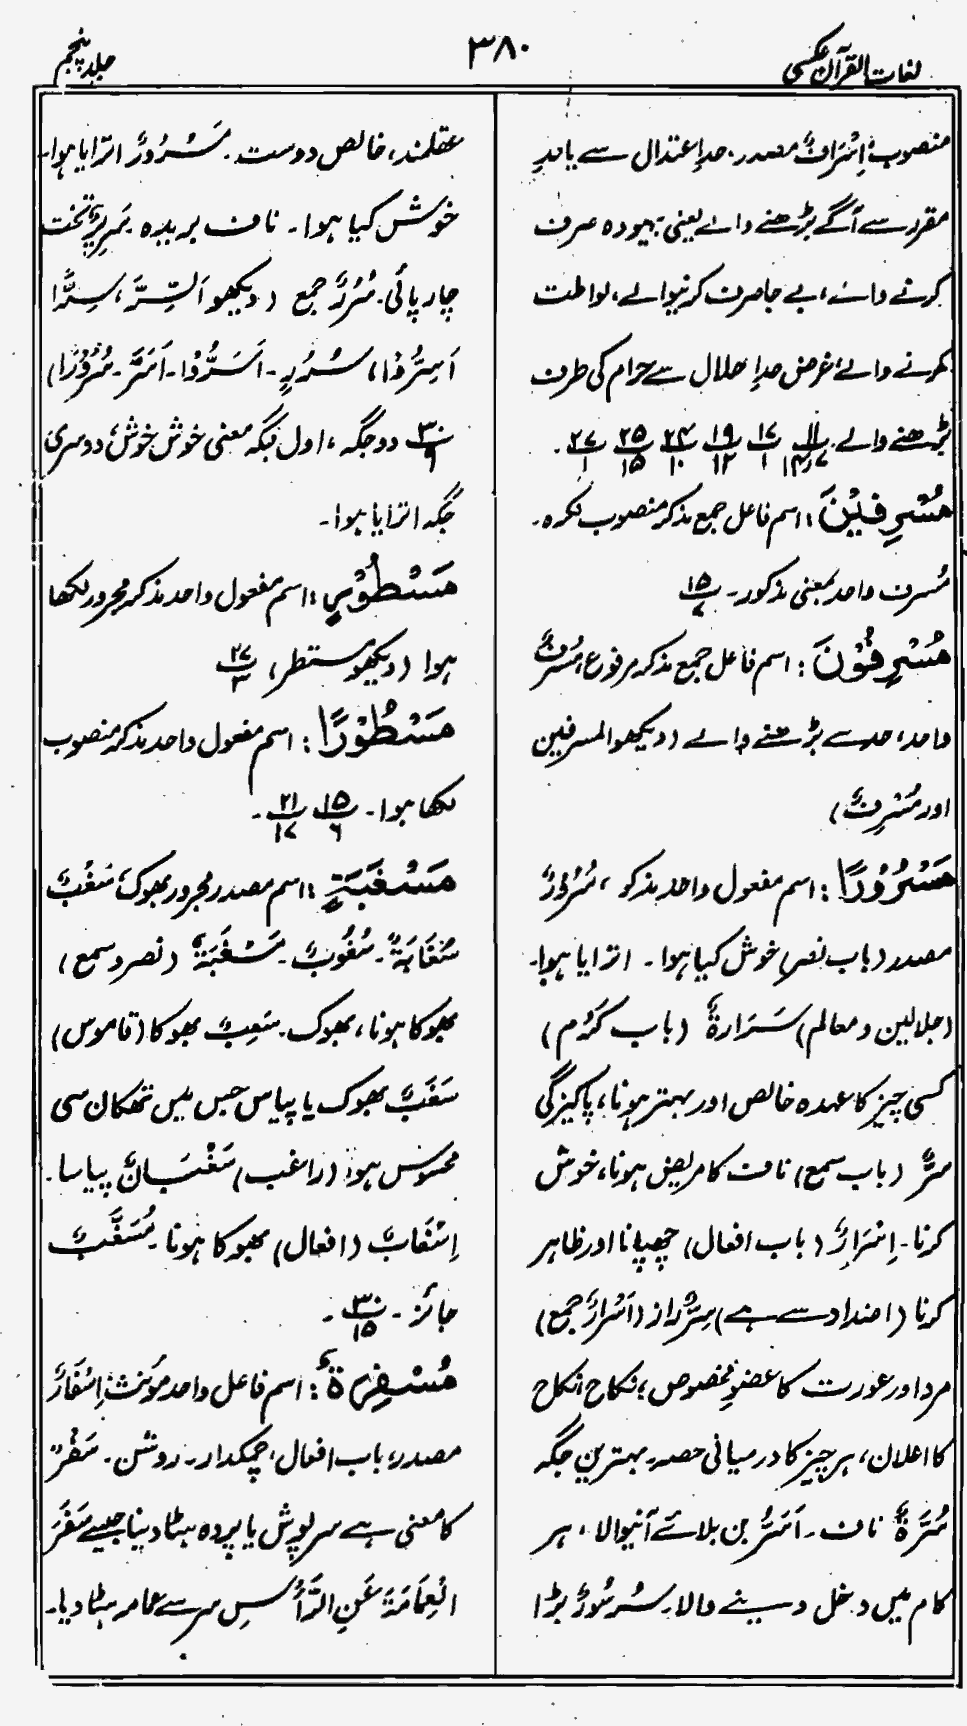 لغات القرآن عکسی
۳۸۰
جلد پنجم
منصوب، اِسْرَافٌ مصدر۔ حدِ اعتدال سے یا حدِ
مقرر سے آگے بڑھنے والے یعنی بیہودہ صرف
کرنے والے، بے جا صرف کرنیوالے، لواطت
کرنے والے، غرض حدِ حلال سے حرام کی طرف
بڑھنے والے۔ ۱۱/۷،۱۴ ۱۷/۱ ۱۹/۱۲ ۲۴/۱۰ ۲۵/۱۵ ۲۷/۱۔
مُسْرِفِيْنَ: اسم فاعل جمع مذکر منصوب نکرہ۔
مُسرف واحد بمعنی مذکور۔ ۱۵/۷
مُسْرِفُوْنَ: اسم فاعل جمع مذکر مرفوع، مُسْرِفٌ
واحد، حد سے بڑھنے والے (دیکھو المسرفین
اور مُسْرِفٌ)
مَسْرُوْرًا: اسم مفعول واحد مذکر، سُرُوْرٌ
مصدر (باب نصر) خوش کیا ہوا۔ اترایا ہوا۔
(جلالین و معالم) سَرَارَةٌ (باب کَرُمَ)
کسی چیز کا عمدہ خالص اور بہتر ہونا، پاکیزگی
سَرٌّ (باب سمع) ناف کا مریض ہونا، خوش
کرنا۔ اِسْرَارٌ (باب افعال) چھپانا اور ظاہر
کرنا (اضداد سے ہے) سِرٌّ راز (اَسْرَارٌ جمع)
مرد اور عورت کا عضوِ مخصوص، نکاح، نکاح
کا اعلان، ہر چیز کا درمیانی حصہ۔ بہترین جگہ
سُرَّةٌ ناف۔ اَسَرُّ بن بلائے آنیوالا، ہر
کام میں دخل دینے والا۔ سُرسُورٌ بڑا
عقلمند، خالص دوست۔ مَسْرُوْرٌ اترایا ہوا۔
خوش کیا ہوا۔ ناف بریدہ سَرِیْرٌ تخت
چارپائی۔ سُرُرٌ جمع (دیکھو اَلسِّرَّ، سِرًّا
اَسِرُّوْا، سُرُرٍ۔ اَسَرُّوْا۔ اَسَرَّ۔ سُرُوْرًا)
۳۰/۹ دو جگہ، اول جگہ معنی خوش خوش، دوسری
جگہ اترایا ہوا۔
مَسْطُوْرٍ: اسم مفعول واحد مذکر مجرور لکھا
ہوا (دیکھو مستطر) ۲۷/۳
مَسْطُوْرًا: اسم مفعول واحد مذکر منصوب
لکھا ہوا۔ ۱۵/۶ ۲۱/۱۷۔
مَسْغَبَةٍ: اسم مصدر مجرور بھوک، سَغْبٌ
سَغَابَةٌ۔ سُغُوْبٌ۔ مَسْغَبَةٌ (نصر و سمع)
بھوکا ہونا، بھوک۔ سَغِبٌ بھوکا (قاموس)
سَغَبٌ بھوک یا پیاس جس میں تھکان سی
محسوس ہو (راغب) سَغْبَانٌ پیاسا۔
اِسْغَابٌ (افعال) بھوکا ہونا۔ مُسَغَّبٌ
جائز۔ ۳۰/۱۵۔
مُسْفِرَةٌ: اسم فاعل واحد مؤنث، اِسْفَارٌ
مصدر، باب افعال، چمکدار۔ روشن۔ سَفْرٌ
کا معنی ہے سرپوش یا پردہ ہٹا دینا جیسے سَفَرَ
الْعِمَامَةَ عَنِ الرَّأْسِ سر سے عمامہ ہٹا دیا۔